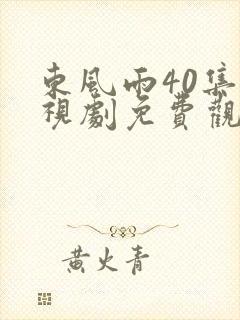 東風雨40集
視劇免費觀
黃火青